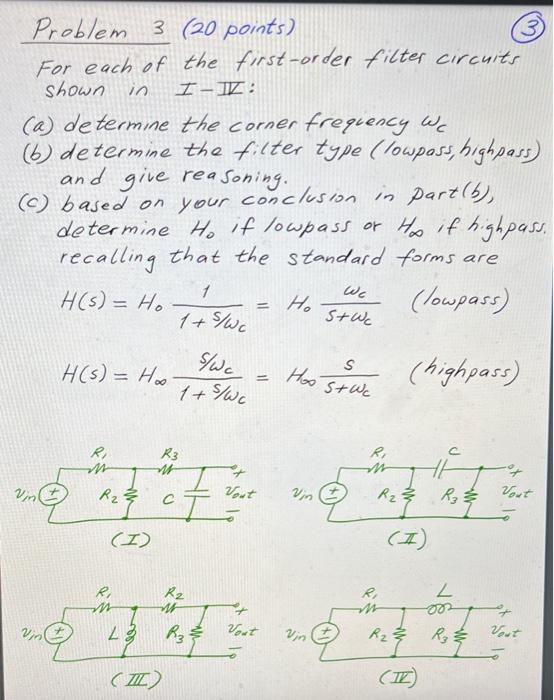 Problem 3 (20 points)
3
For each of the first-order filter circuits
shown in I-IV:
(a) determine the corner frequency ωc
(b) determine the filter type (lowpass, highpass)
and give reasoning.
(c) based on your conclusion in part(b),
determine H₀ if lowpass or H∞ if highpass.
recalling that the standard forms are
H(s) = H₀ 1/(1 + s/ωc) = H₀ ωc/(s+ωc) (lowpass)
H(s) = H∞ (s/ωc)/(1 + s/ωc) = H∞ s/(s+ωc) (highpass)
R₁ R₃ R₁ C
Vin + R₂ C + Vout − Vin + R₂ R₃ + Vout −
(I) (II)
R₁ R₂ R₁ L
Vin + L R₃ + Vout − Vin + R₂ R₃ + Vout −
(III) (IV)